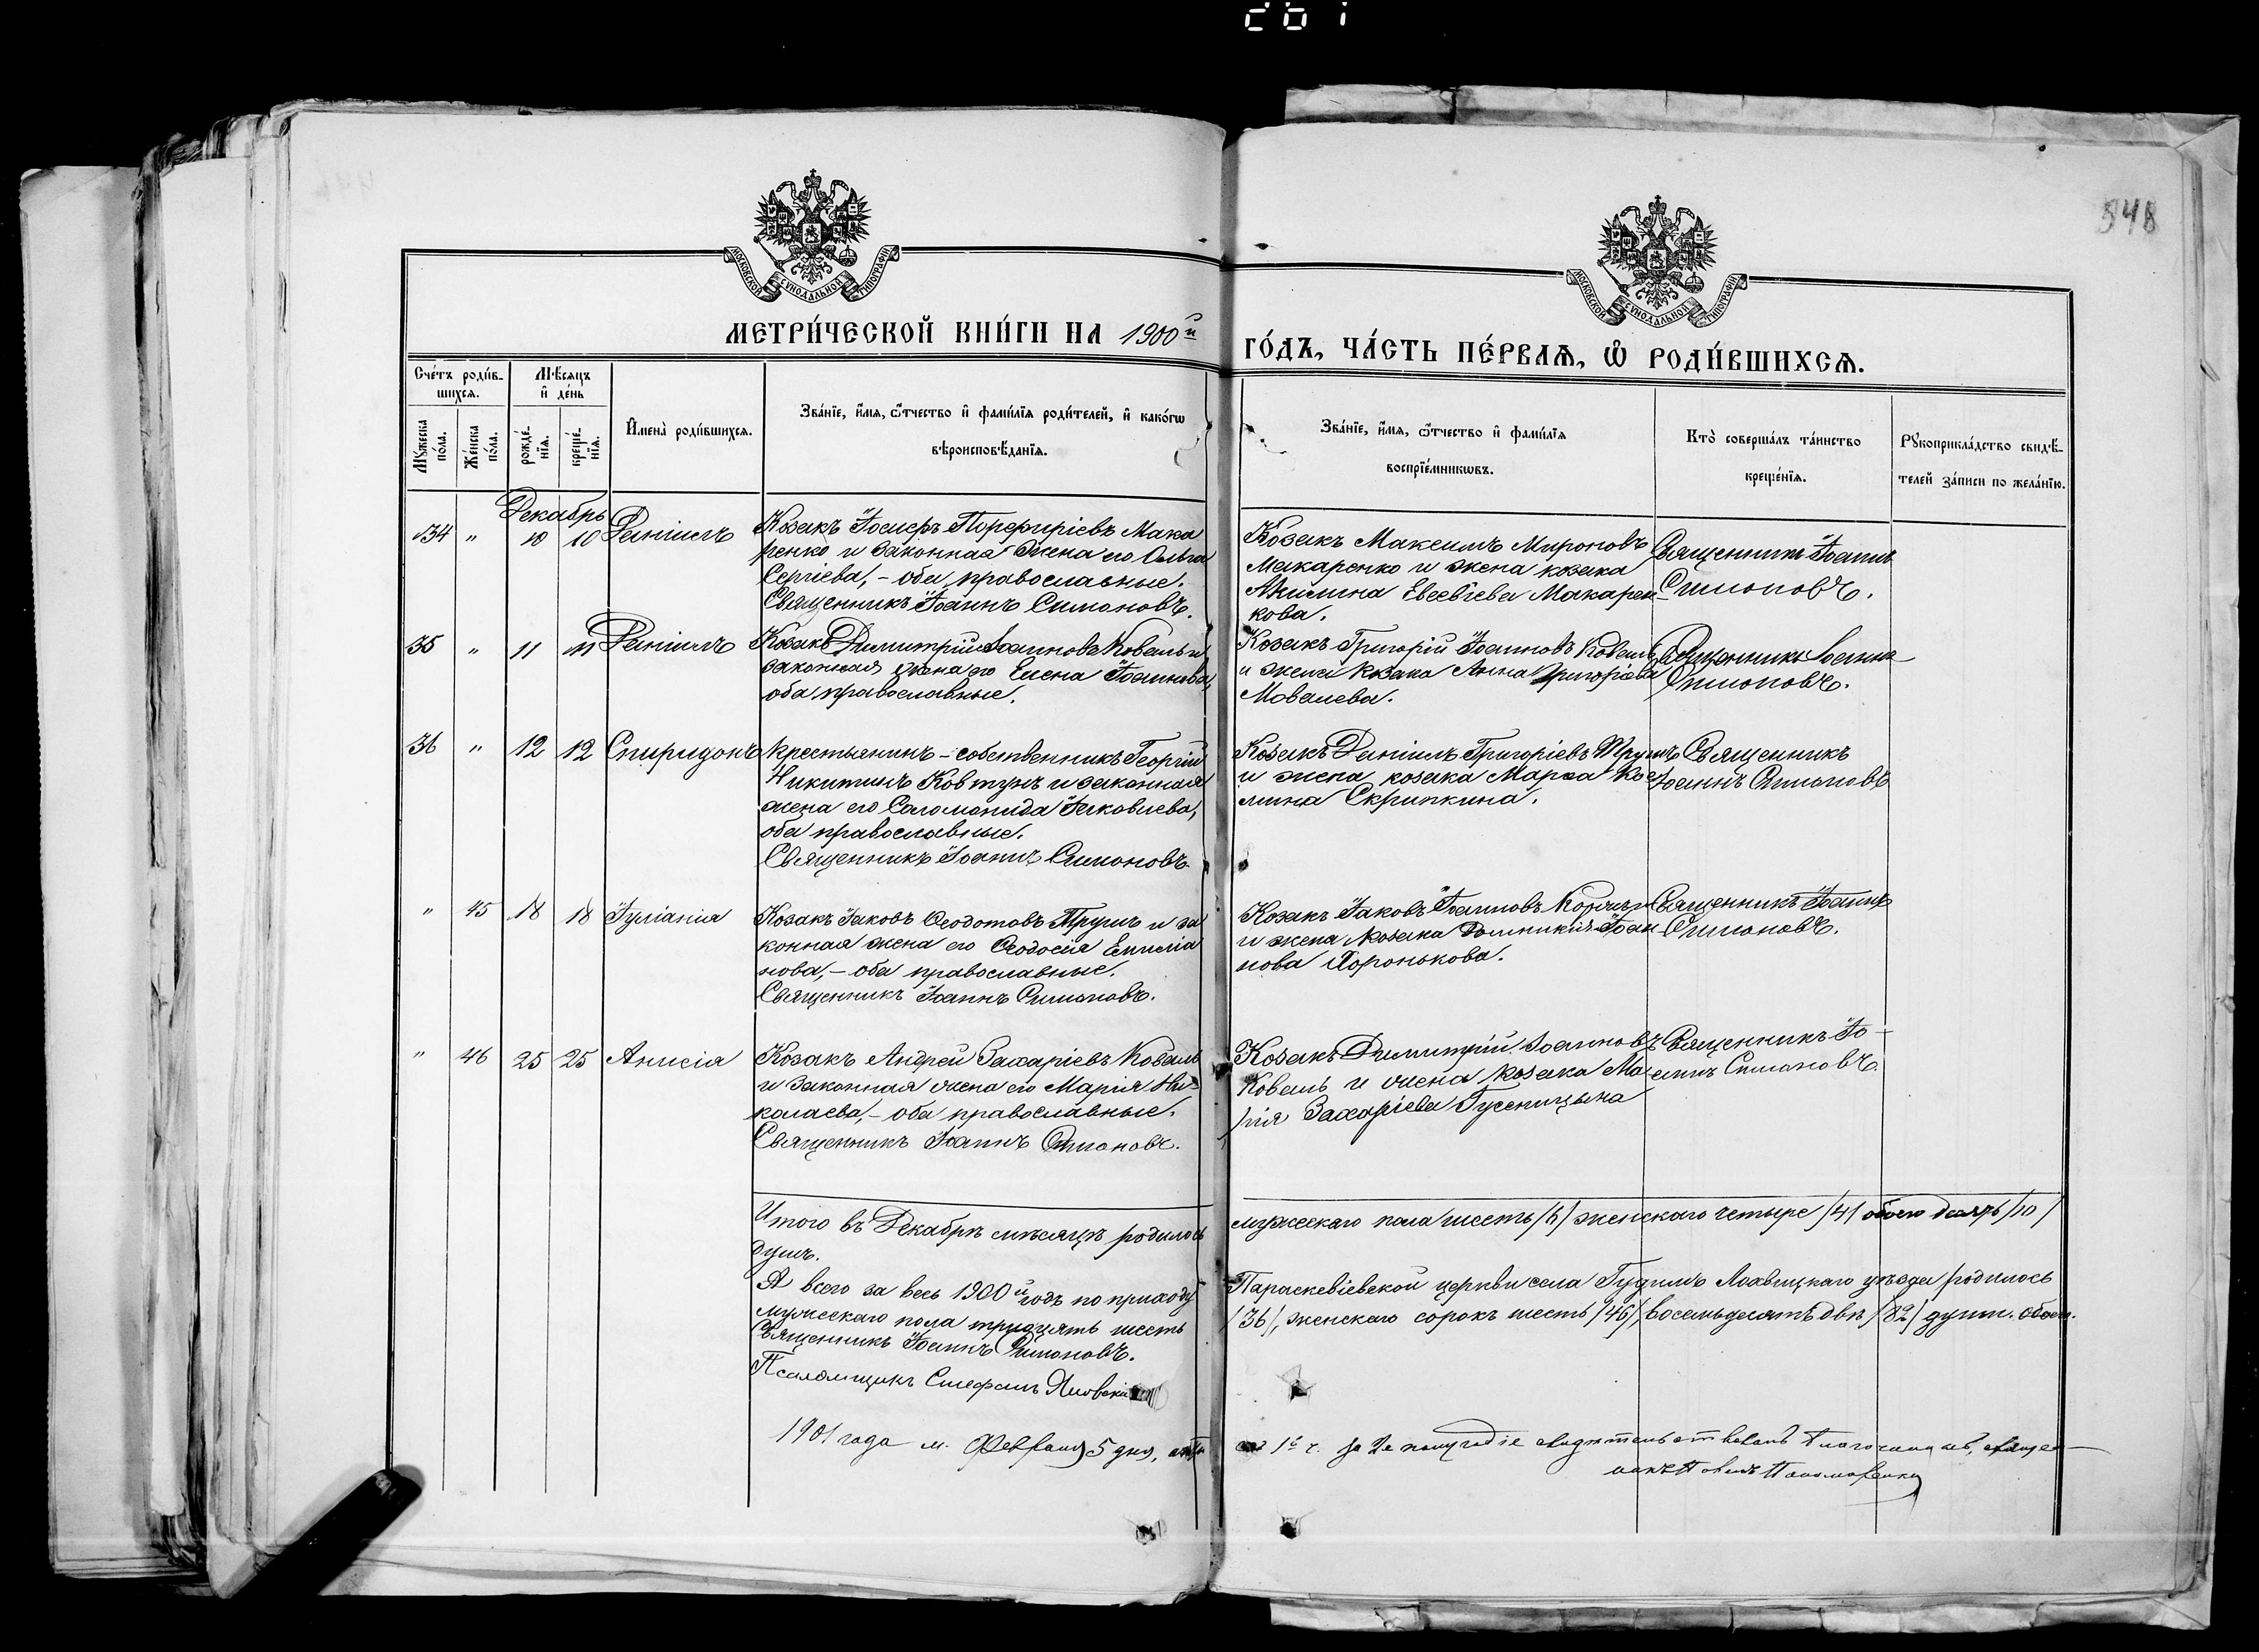 548
МОСКОВСКОЙ СѴНОДАЛЬНОЙ ТИПОГРАФІИ
МОСКОВСКОЙ СѴНОДАЛЬНОЙ ТИПОГРАФІИ
МЕТРИ́ЧЕСКОЙ КНИ́ГИ НА 1900й ГО́ДЪ, ЧА́СТЬ ПЕ́РВАѦ, Ѡ РОДИ́ВШИХСѦ.
Сче́тъ роди́в-
шихсѧ.
Мѣсѧцъ
и де́нь
Мꙋжеска по́ла.
Же́нска по́ла.
рожде́-нїѧ.
креще́-нїѧ.
Имена̀ роди́вшихсѧ.
Зва́нїе, и́мѧ, ѻ҆́тчество и фами́лїѧ роди́телей, и како́гѡ
вѣроисповѣ́данїѧ.
Зва́нїе, и́мѧ, ѻ҆́тчество и фами́лїѧ
воспрїе́мникѡвъ.
Кто̀ соверша́лъ та́инство
креще́нїѧ.
Рꙋкоприкла́дство свидѣ́-
телей за́писи по жела́нїю.
Декабрь
34 " 10 10 Даніилъ
Козакъ Іосифъ Порфиріевъ Мака
ренко и законная жена его Ольга
Сергіева, - оба православные.
Священникъ Іоаннъ Симоновъ.
Козакъ Максимъ Мироновъ
Макаренко и жена козака
Акилина Евсевіева Макарен-
кова.
Священникъ Іоаннъ
Симоновъ.
35 " 11 11 Даніилъ
Козакъ Димитрій Іоанновъ Коваль и
законная жена его Елена Іоаннова,
оба православные.
Козакъ Григорій Іоанновъ Коваль
и жена козака Анна Григоріева
Ковалева.
Священникъ Іоаннъ
Симоновъ.
36 " 12 12 Спиридонъ
Крестьянинъ-собственникъ Георгій
Никитинъ Ковтунъ и законная
жена его Саломонида Іаковлева,
оба православные.
Священникъ Іоаннъ Симоновъ.
Козакъ Даніилъ Григоріевъ Трушъ
и жена козака Марѳа
Скрипкина.
Священникъ
Іоаннъ Симоновъ
" 45 18 18 Іуліанія
Козакъ Іаковъ Ѳеодотовъ Трушъ и за
конная жена его Ѳеодосія Емилiа
нова, - оба православные.
Священникъ Іоаннъ Симоновъ.
Козакъ Іаковъ Іоанновъ
и жена козака Домникія Іоан
нова Хоронькова.
Священникъ Іоаннъ
Симоновъ.
" 46 25 25 Анисія
Козакъ Андрей Захаріевъ Коваль
и законная жена его Марія Ни-
колаева, - оба православные.
Священникъ Іоаннъ Симоновъ.
Козакъ Димитрій Іоанновъ
Коваль и жена козака Ма-
рія Захаріева Гусеницына
Священникъ Іо-
аннъ Симоновъ.
Итого въ Декабрѣ мѣсяцѣ родилось мужескаго пола шесть /6/ женскаго четыре /4/ обоего десять /10/
душъ.
А всего за весь 1900й годъ по приходу Параскевіевской церкви села Гудимъ Лохвицкаго уѣзда родилось
мужескаго пола тридцать шесть /36/, женскаго сорокъ шесть /46/ восемьдесятъ двѣ /82/ душъ. обоего.
Священникъ Іоаннъ Симоновъ.
Псаломщикъ Стефанъ Яновскі
1901 года м. Февраля 5 дня, 1й ч. за 2е полугодіе свидѣтельствовалъ Благочинный, священ-
никъ Павелъ Пономаренко